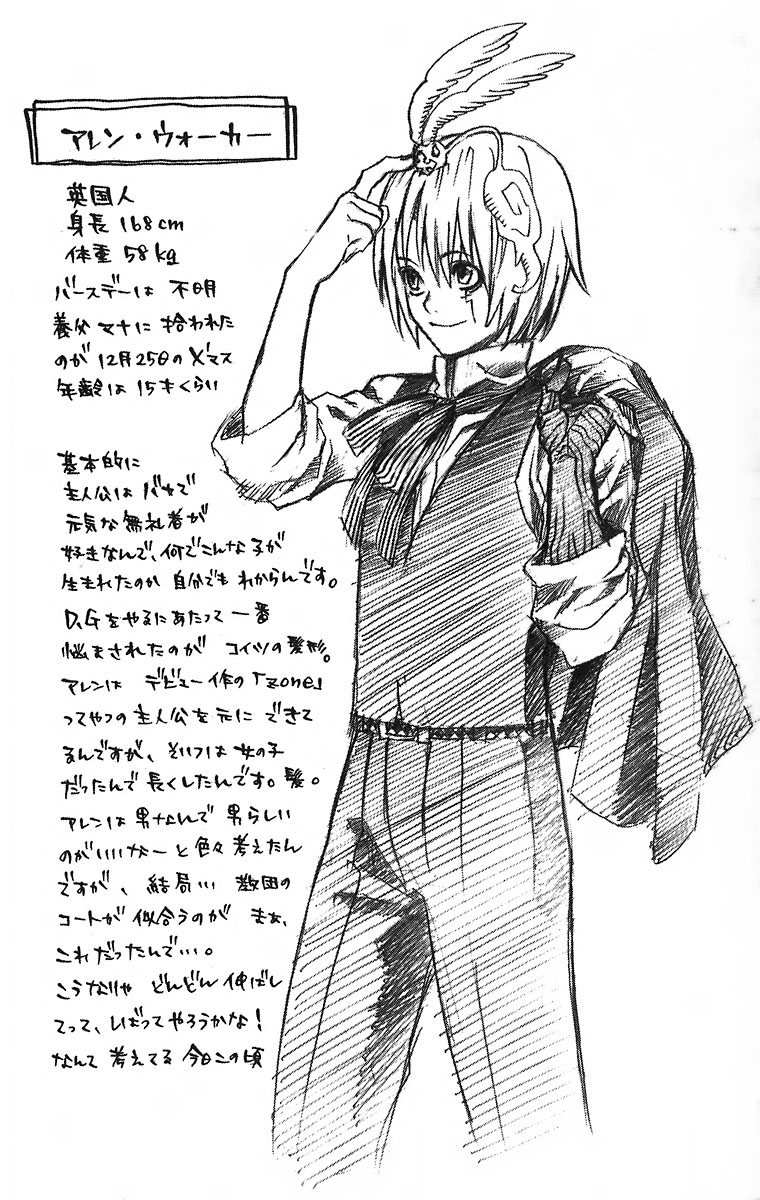 アレン・ウォーカー
英国人
身長 168cm
体重 58kg
バースデーは 不明
養父 マナに 拾われた
のが 12月25日の X'マス
年齢は 15才くらい
基本的に
主人公は バカで
元気な 無礼者が
好きなんで、何でこんな子が
生まれたのか 自分でも わからんです。
D,Gをやるにあたって 一番
悩まされたのが コイツの髪形。
アレンは デビュー作の「zone」
ってやつの主人公を元に できて
るんですが、そいつは女の子
だったんで長くしたんです。髪。
アレンは 男なんで 男らしい
のがいいなーと色々考えたん
ですが、結局… 教団の
コートが 似合うのが まぁ、
これだったんで…。
こうなりゃ どんどん 伸ばし
てって、しばってやろうかな!
なんて 考えてる 今日この頃